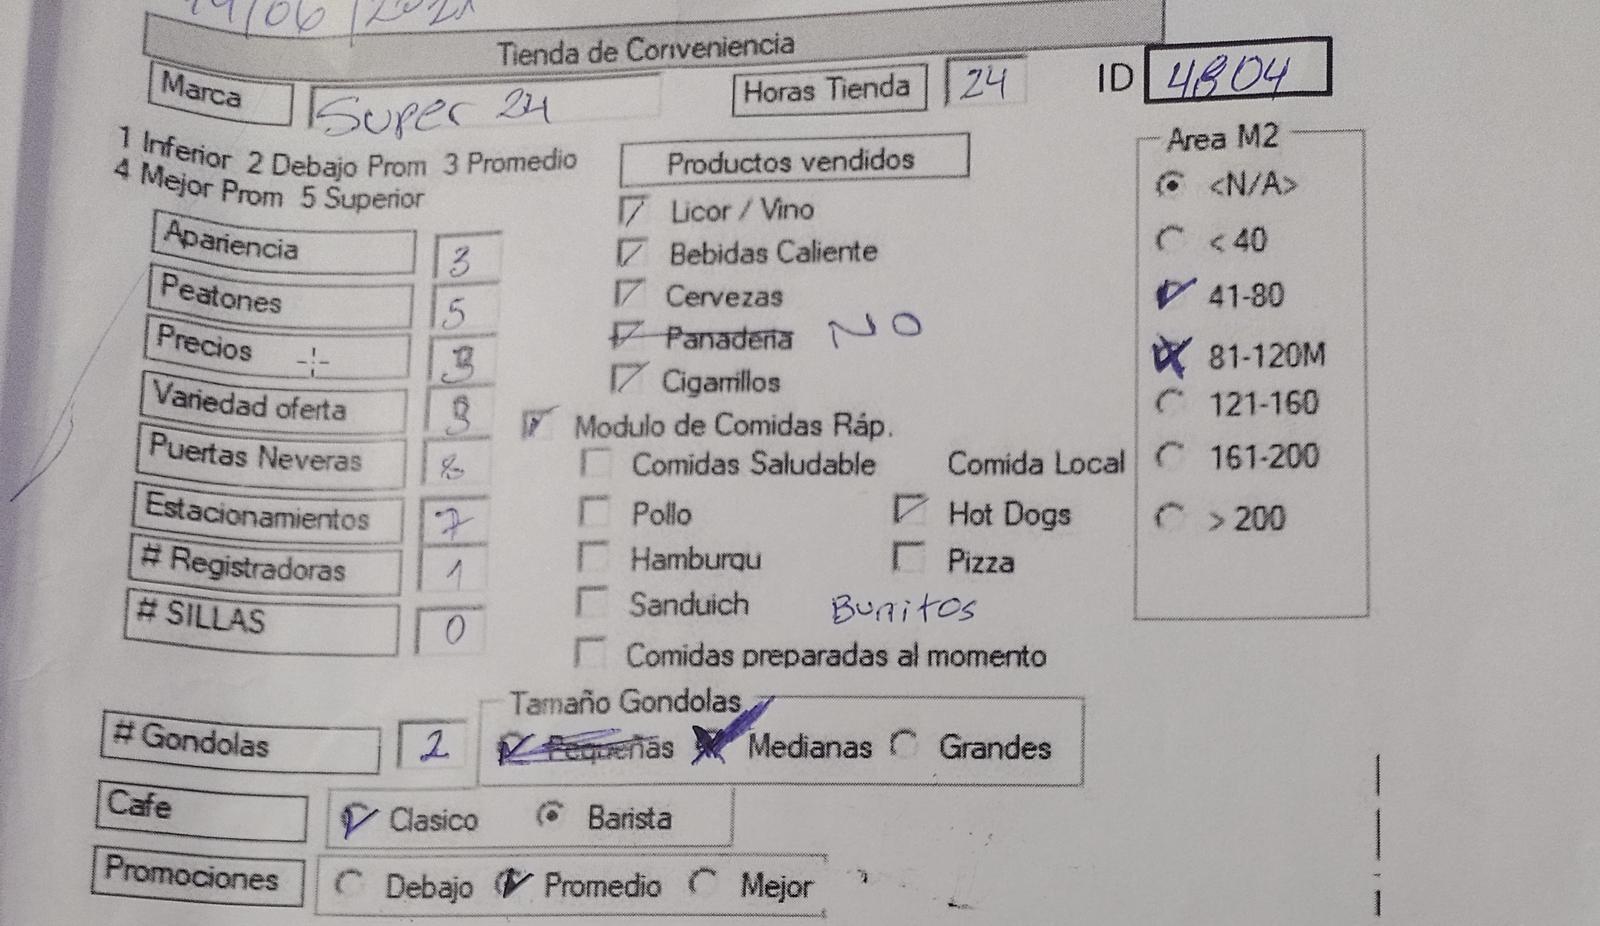 Tienda de Conveniencia
Marca Super 24 Horas Tienda 24 ID 4804
1 Inferior 2 Debajo Prom 3 Promedio
4 Mejor Prom 5 Superior
Apariencia 3
Peatones 5
Precios 3
Variedad oferta 3
Puertas Neveras 8
Estacionamientos 7
# Registradoras 1
# SILLAS 0
Productos vendidos
Licor / Vino
Bebidas Caliente
Cervezas
Panaderia NO
Cigarrillos
Modulo de Comidas Ráp.
Comidas Saludable Comida Local
Pollo Hot Dogs
Hamburqu Pizza
Sanduich Burritos
Comidas preparadas al momento
Area M2
<N/A>
< 40
41-80
81-120M
121-160
161-200
> 200
# Gondolas 2
Tamaño Gondolas
Pequeñas Medianas Grandes
Cafe Clasico Barista
Promociones Debajo Promedio Mejor